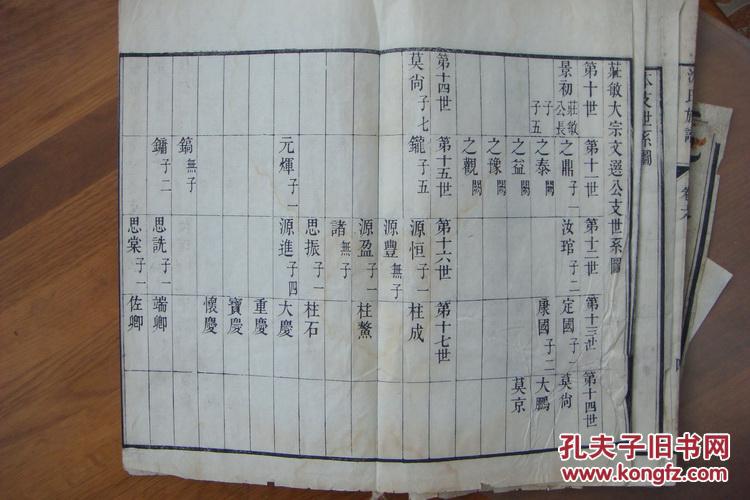 莊敏大宗文選公支世系圖
第十世 第十一世 第十二世 第十三世 第十四世
景初 莊敏公長子 子五 之鼎 子一 汝琯 子二 定國 莫尙
之泰 闕 康國 子二 大鵬
之益 闕 莫京
之豫 闕
之觀 闕
第十四世 第十五世 第十六世 第十七世
莫尙 子七 鑨 子五 源恒 子一 柱成
源豐 無子
源盈 子一 柱鰲
諸 無子
思振 子一 柱石
元煇 子一 源進 子四 大慶
重慶
寶慶
懷慶
鎬 無子
鏞 子二 思詵 子一 端卿
思棠 子一 佐卿
本支世系圖
孔夫子旧书网
www.kongfz.com